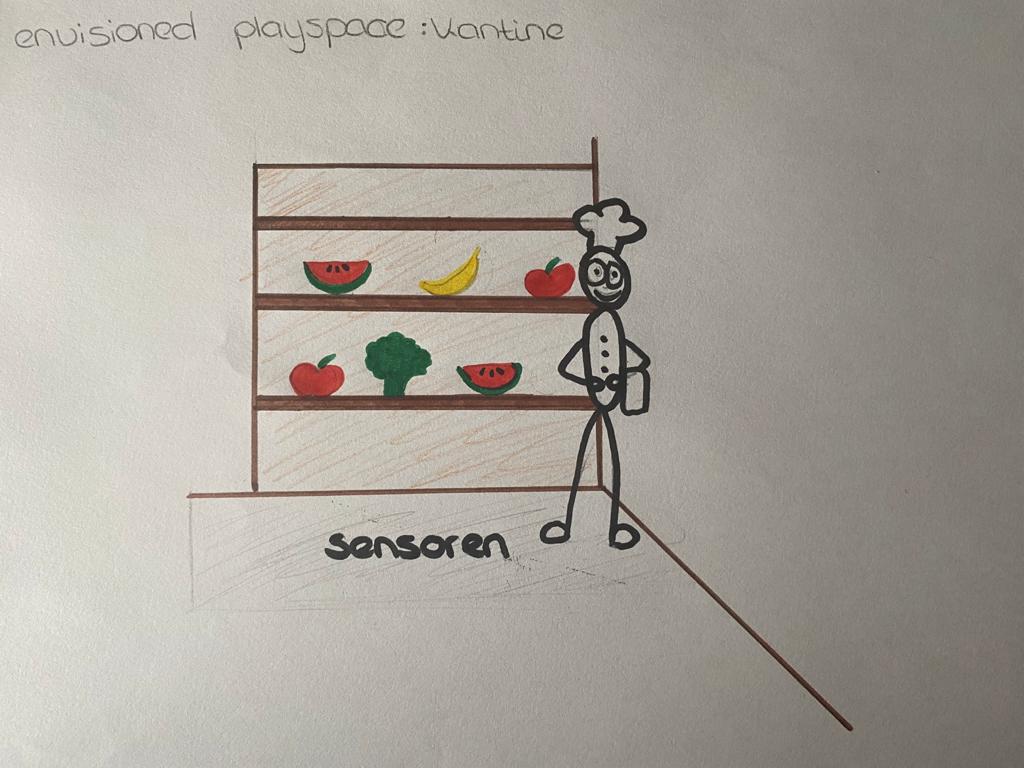 envisioned playspace : Kantine
sensoren